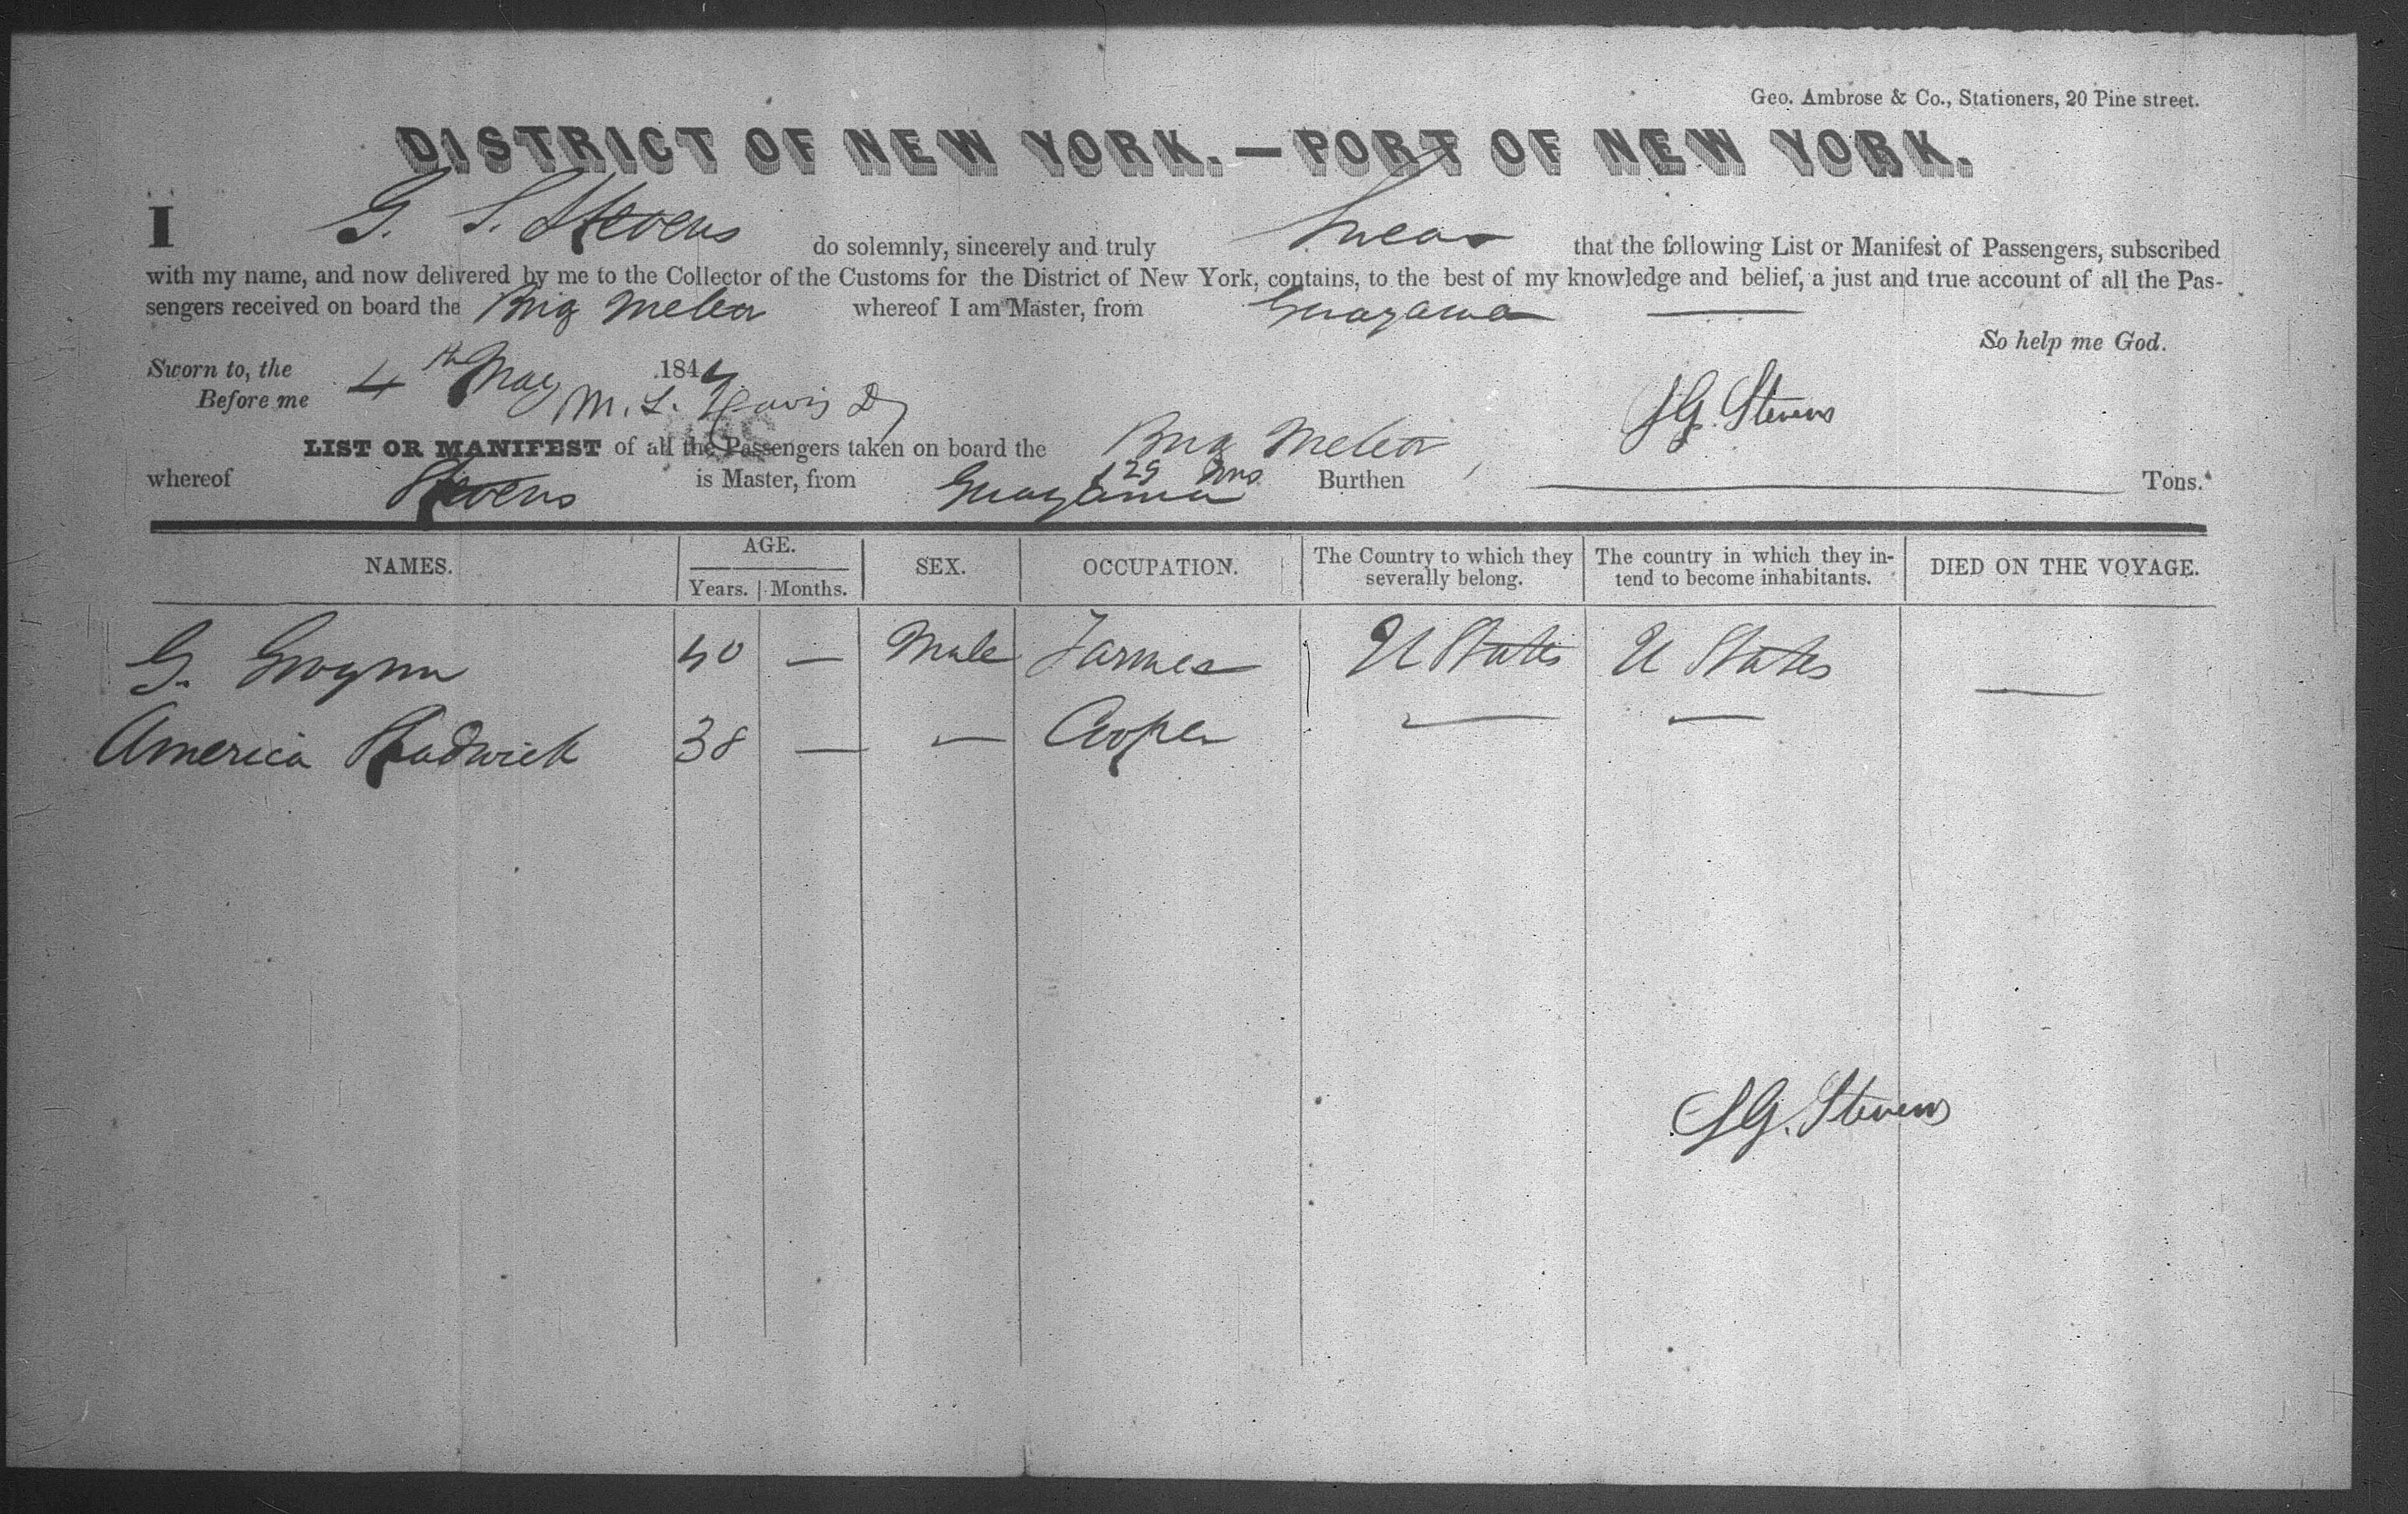 Geo. Ambrose & Co., Stationers, 20 Pine street.
DISTRICT OF NEW YORK.—PORT OF NEW YORK.
I G. S. Stevens do solemnly, sincerely and truly Swear that the following List or Manifest of Passengers, subscribed
with my name, and now delivered by me to the Collector of the Customs for the District of New York, contains, to the best of my knowledge and belief, a just and true account of all the Pas-
sengers received on board the Brig Meteor whereof I am Master, from Guayama
So help me God.
Sworn to, the 4th May 184
Before me M. L. Davis Dy
S G. Stevens
LIST OR MANIFEST of all the Passengers taken on board the Brig Meteor
whereof Stevens is Master, from Guayama 129 Tons Burthen Tons.
NAMES. AGE. SEX. OCCUPATION. The Country to which they severally belong. The country in which they intend to become inhabitants. DIED ON THE VOYAGE.
Years. Months.
G. Gwynn 40 — Male Farmer U States U States —
America 38 — — Cooper — —
S G. Stevens